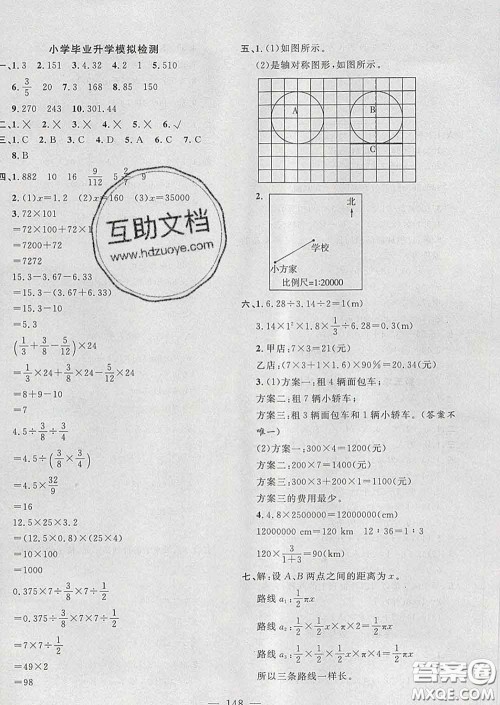 小学毕业升学模拟检测
一、1.3 2.151 3.4.32 4.2 5.510
6. 3/5 20 7.168 8.159 150
9.270 243 10.301.44
二、1.× 2.× 3.× 4.× 5.× 6.√
三、1.C 2.B 3.A 4.C 5.C 6.C 7.C
8.B
四、1.882 10 16 9/112 2/7 9
2.(1)x=1.2 (2)x=160 (3)x=35000
3.72×101
=72×100+72×1
=7200+72
=7272
15.3-3.67-6.33
=15.3-(3.67+6.33)
=5.3
(1/3+3/8-5/12)×24
=1/3×24+3/8×24-5/12×24
=8+9-10
=7
4.5÷3/4÷3/8
=4.5÷(3/4×3/8)
=4.5×32/9
=16
12.5×25×3.2
=(12.5×0.8)×(25×4)
=10×100
=1000
0.375×7÷3/8×7÷1/2
=0.375÷3/8×7×7÷1/2
=7×7÷1/2
=49×2
=98
五、1.(1)如图所示。
(2)是轴对称图形,如图所示。
A B
C
2.
北
学校
小方家
比例尺=1:20000
六、1.6.28÷3.14÷2=1(m)
3.14×1²×1.8×1/3÷6.28=0.3(m)
2.甲店:7×3=21(元)
乙店:[7×3+1.6×1]×90%=20.34(元)
3.(1)方案一:租4辆面包车;
方案二:租7辆小轿车;
方案三:租3辆面包车和1辆小轿车。(答案不
唯一)
(2)方案一:300×4=1200(元)
方案二:200×7=1400(元)
方案三:300×3+200×1=1100(元)
方案三的费用最少。
4.4.8×2500000=12000000(cm)
12000000 cm=120 km
120×3/(1+3)=90(km)
七、解:设A、B两点之间的距离为x。
路线a₁:1/2πx
路线a₂:1/2×1/2x×π×2=1/2πx
所以三条路线一样长。
148
互助文档
www.hdzuoye.com
答案圈
MXQE.COM